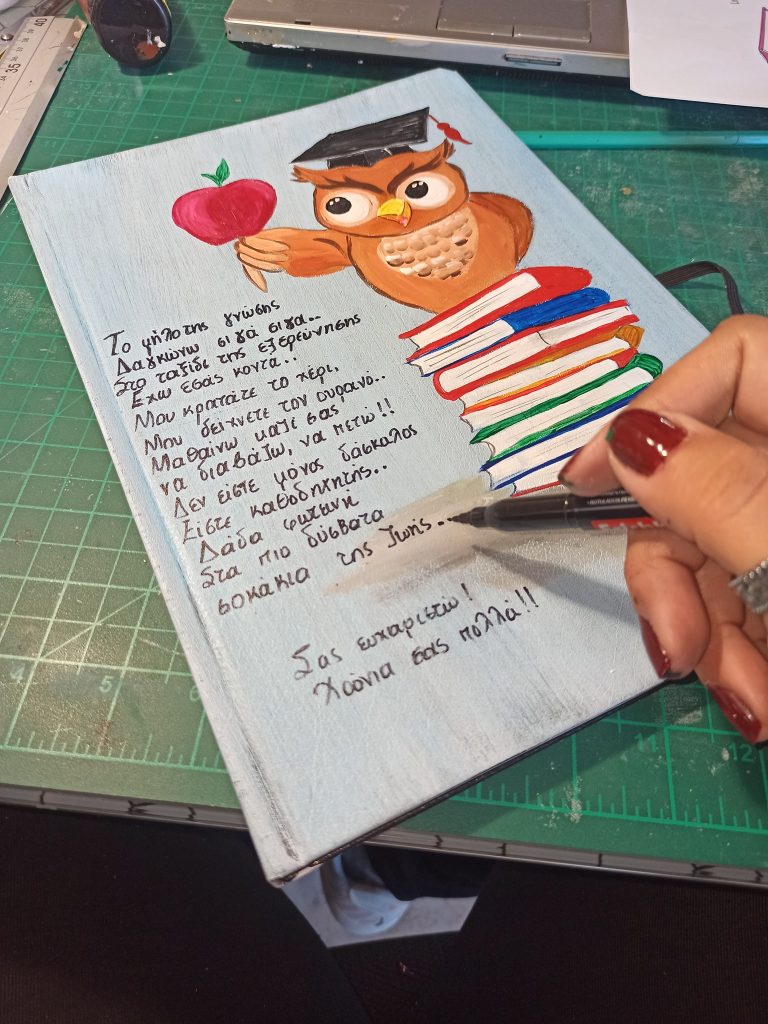 Το μήλο της γνώσης
Δαγκώνω σιγά σιγα..
Στο ταξίδι της εξερεύνησης
Έχω εσάς κοντα..
Μου κρατάτε το χέρι,
Μου δείχνετε τον ουρανό..
Μαθαίνω μαζί σας
να διαβάζω, να πετώ!!
Δεν είστε μόνος δάσκαλος
Είστε καθοδηγητής..
Δάδα φωτεινη
Στα πιο δύσβατα
σοκάκια της ζωής..
Σας ευχαριστώ!
Χρόνια σας πολλά!!